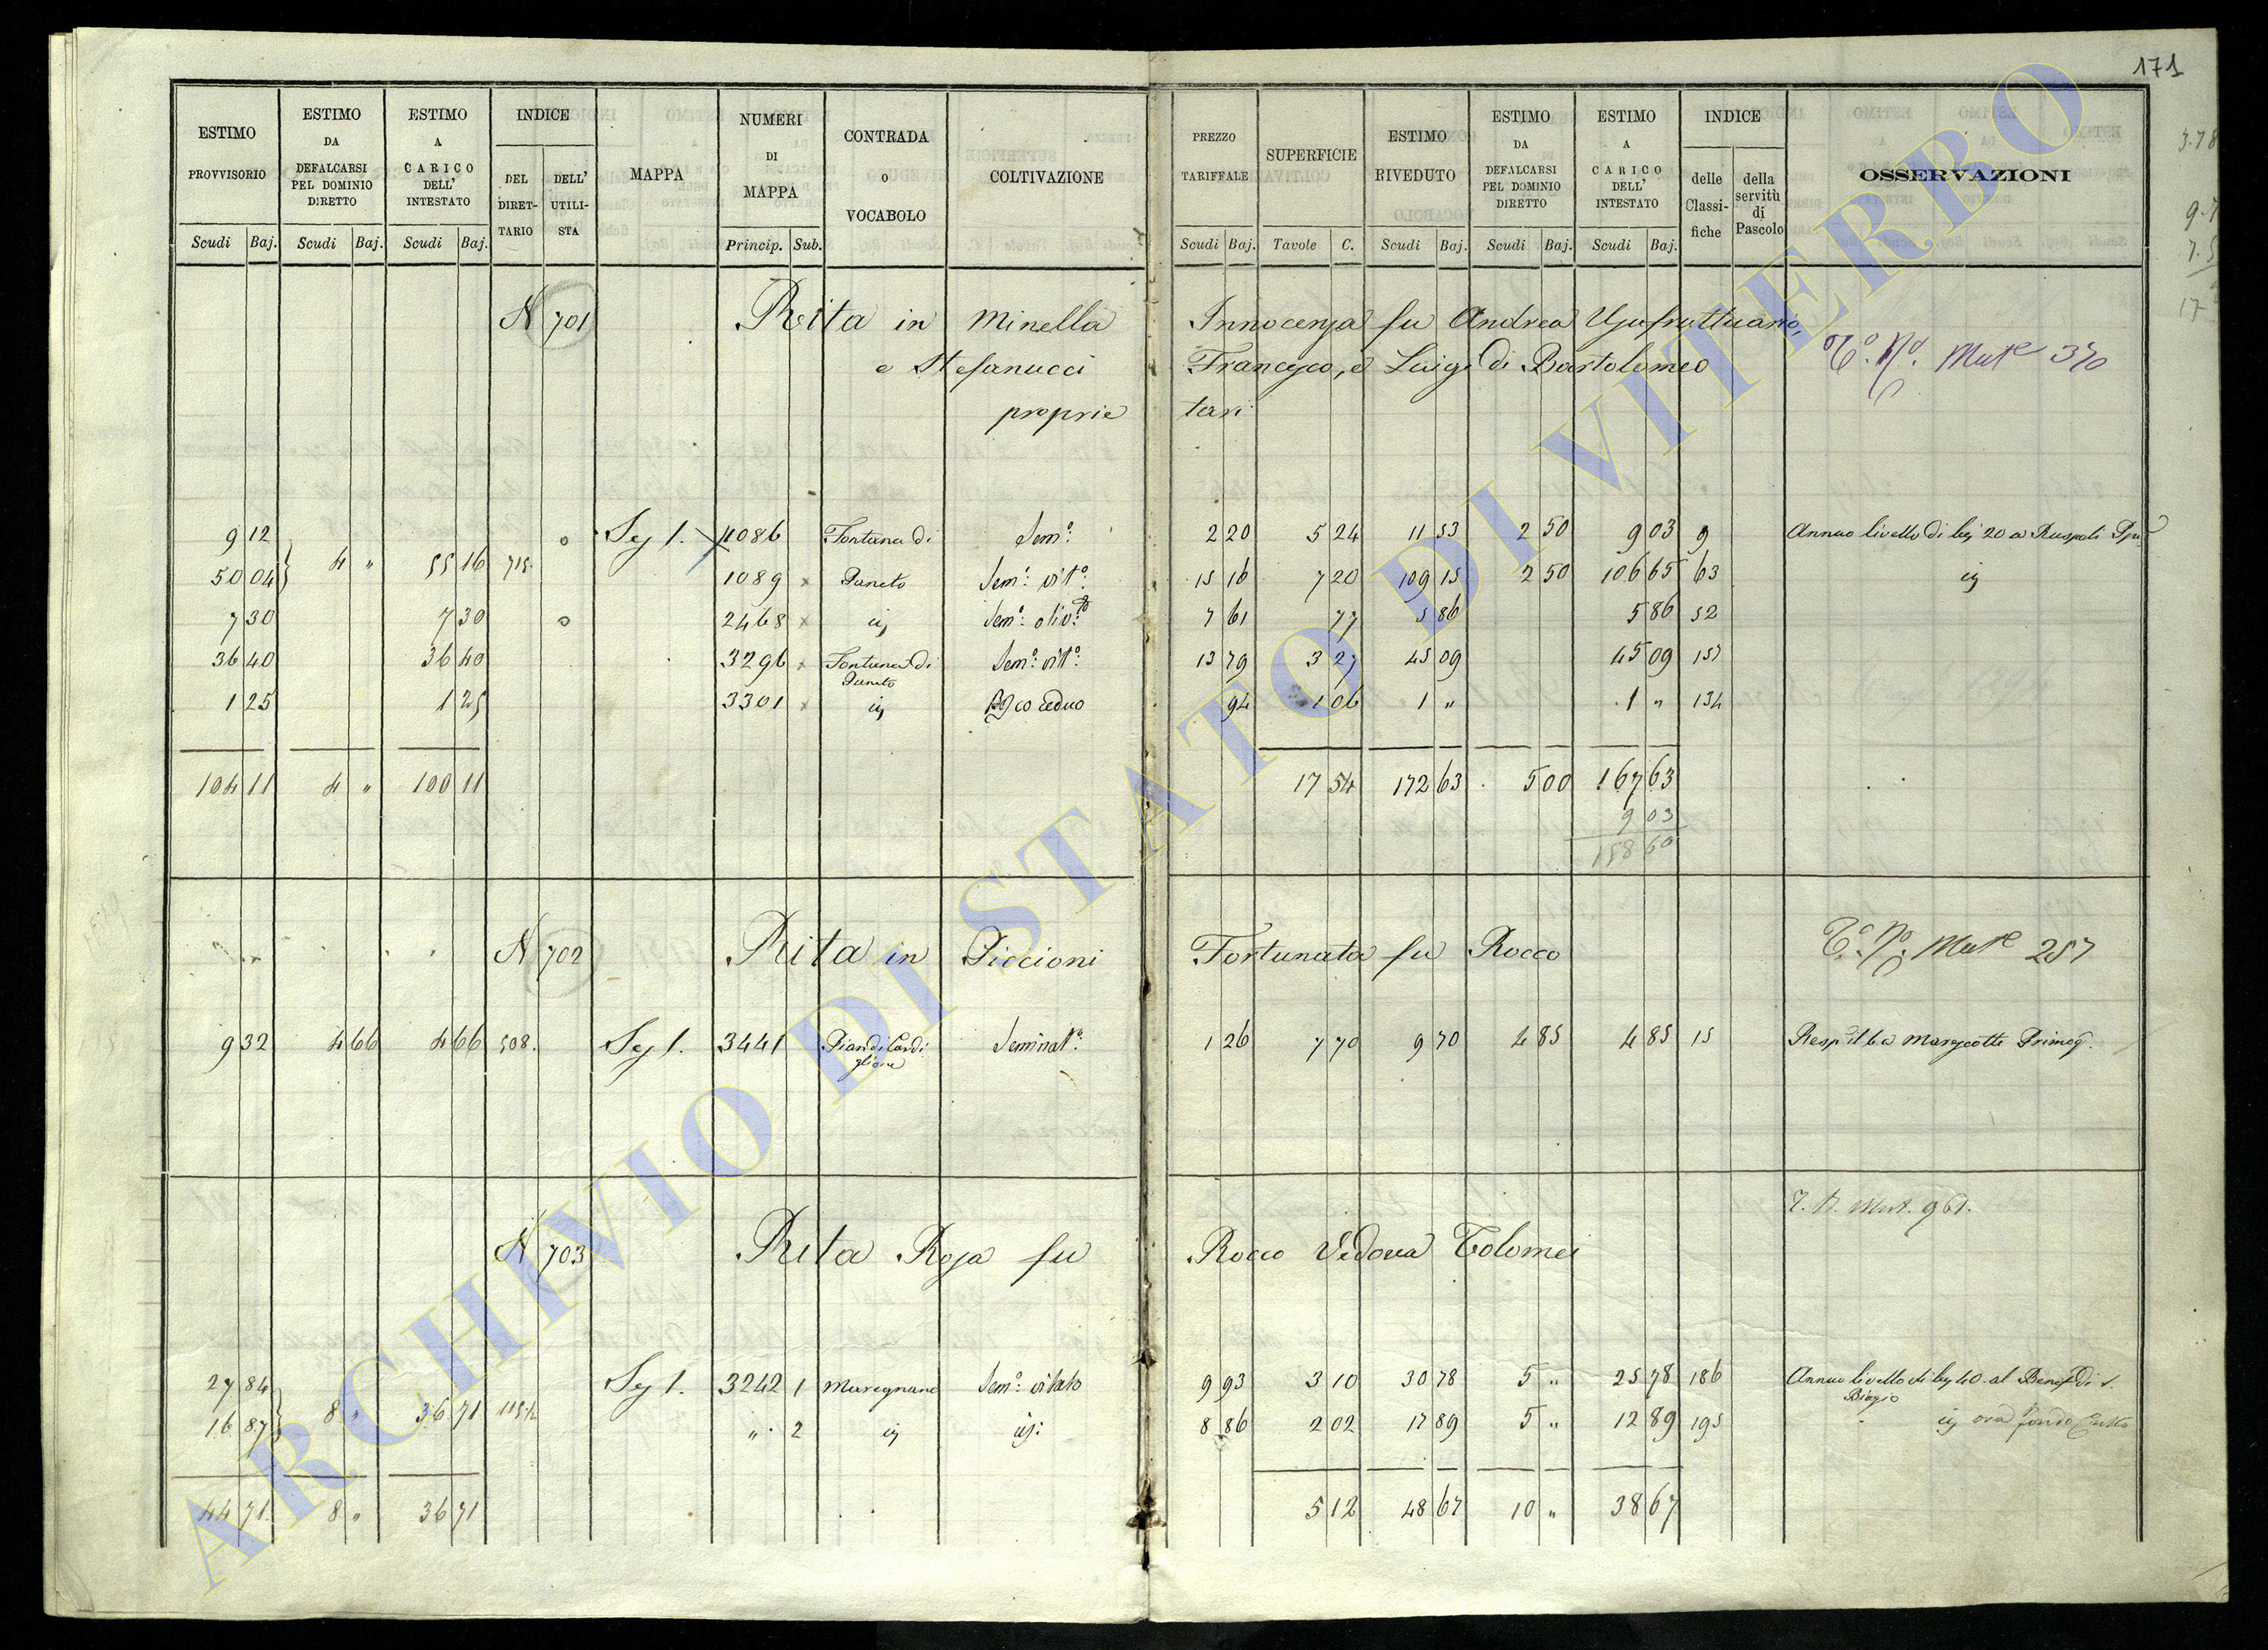 171
3.78
ESTIMO PROVVISORIO | ESTIMO DA DEFALCARSI PEL DOMINIO DIRETTO | ESTIMO A CARICO DELL' INTESTATO | INDICE | MAPPA | NUMERI DI MAPPA | CONTRADA o VOCABOLO | COLTIVAZIONE | PREZZO TARIFFALE | SUPERFICIE | ESTIMO RIVEDUTO | ESTIMO DA DEFALCARSI PEL DOMINIO DIRETTO | ESTIMO A CARICO DELL' INTESTATO | INDICE | OSSERVAZIONI
DEL DIRETTARIO | DELL' UTILISTA | delle Classifiche | della servitù di Pascolo
Scudi Baj. | Scudi Baj. | Scudi Baj. | Princip. Sub. | Scudi Baj. | Tavole C. | Scudi Baj. | Scudi Baj. | Scudi Baj.
N 701 Rita in Minella Innocenza fu Andrea Usufruttuaria,
e Stefanucci Francesco, e Luigi di Bartolomeo Mut.e 370
proprie tari
9 12 Seg 1. 1086 Fontana di Sem.o 2 20 5 24 11 53 2 50 9 03 9 Annuo livello di baj 20 a Ruspoli
50 04 4 " 55 16 715. 1089 x Paneto Sem.o vit.o 15 16 7 20 109 15 2 50 106 65 63
7 30 7 30 2468 x Sem.o oliv.o 7 61 77 5 86 5 86 52
36 40 36 40 3296 x Fontana di Paneto Sem.o vit.o 13 79 3 27 45 09 45 09 157
1 25 1 25 3301 x Bosco ceduo 94 1 06 1 " 1 " 134
104 11 4 " 100 11 17 54 172 63 5 00 167 63
9 03
158 60
N 702 Rita in Piccioni Fortunata fu Rocco Mut.e 257
9 32 4 66 4 66 508. Seg 1. 3441 Seminat.o 1 26 7 70 9 70 4 85 4 85 15 Marescotti Primog.
Mut. 961.
N 703 Rita Rosa fu Rocco Vedova Tolomei
27 84 Seg 1. 3242 1 Maregnano Sem.o vitato 9 93 3 10 30 78 5 " 25 78 186 Annuo livello di baj 40. al Benef. di S. Biagio
16 87 8 " 36 71 " 2 8 86 2 02 17 89 5 " 12 89 195 ora fondo Culto
44 71 8 " 36 71 5 12 48 67 10 " 38 67
ARCHIVIO DI STATO DI VITERBO